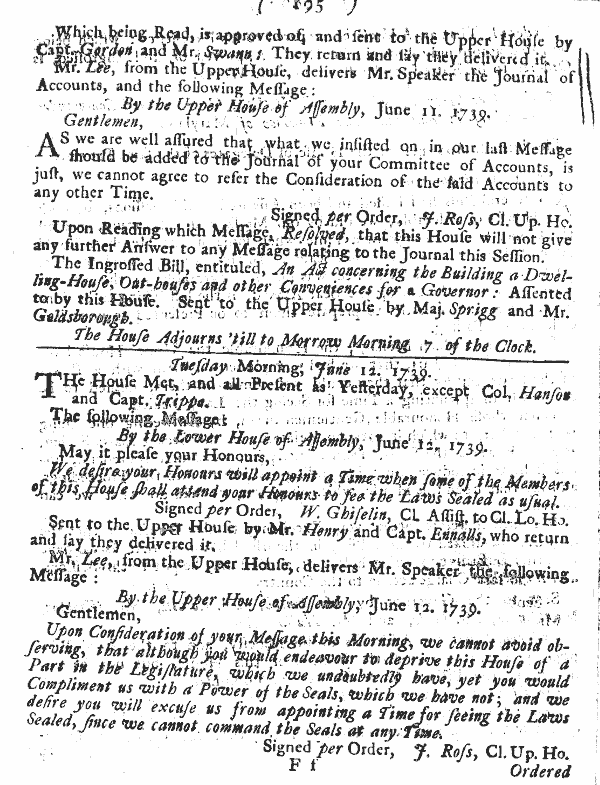 ( 895 )
Which being Read, is approved of, and sent to the Upper House by
Capt. Gordon and Mr. Swann; They return and say they delivered it.
Mr. Lee, from the Upper House, delivers Mr. Speaker the Journal of
Accounts, and the following Message:
By the Upper House of Assembly, June 11. 1739.
Gentlemen,
AS we are well assured that what we insisted on in our last Message
should be added to the Journal of your Committee of Accounts, is
just, we cannot agree to refer the Consideration of the said Accounts to
any other Time.
Signed per Order, J. Ross, Cl. Up. Ho.
Upon Reading which Message, Resolved, that this House will not give
any further Answer to any Message relating to the Journal this Session.
The Ingrossed Bill, entituled, An Act concerning the Building a Dwel-
ling-House, Out-houses and other Conveniences for a Governor: Assented
to by this House. Sent to the Upper House by Maj. Sprigg and Mr.
Goldsborough.
The House Adjourns 'till to Morrow Morning 7 of the Clock.
Tuesday Morning, June 12. 1739.
THe House Met, and all Present as Yesterday, except Col. Hanson
and Capt. Trippe.
The following Message:
By the Lower House of Assembly, June 12. 1739.
May it please your Honours,
We desire your Honours will appoint a Time when some of the Members
of this House shall attend your Honours to see the Laws Sealed as usual.
Signed per Order, W. Ghiselin, Cl. Assist. to Cl. Lo. Ho.
Sent to the Upper House by Mr. Henry and Capt. Ennalls, who return
and say they delivered it.
Mr. Lee, from the Upper House, delivers Mr. Speaker the following
Message:
By the Upper House of Assembly, June 12. 1739.
Gentlemen,
Upon Consideration of your Message this Morning, we cannot avoid ob-
serving, that although you would endeavour to deprive this House of a
Part in the Legislature, which we undoubtedly have, yet you would
Compliment us with a Power of the Seals, which we have not; and we
desire you will excuse us from appointing a Time for seeing the Laws
Sealed, since we cannot command the Seals at any Time.
Signed per Order, J. Ross, Cl. Up. Ho.
F f
Ordered